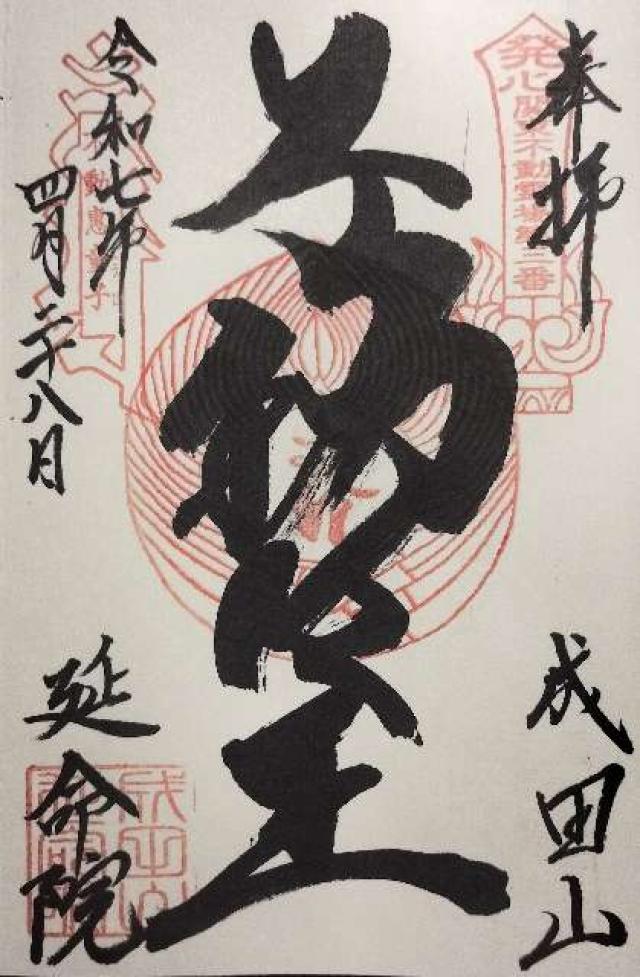 奉拝
発心 関東不動霊場第三番
成田山
不動明王
令和七年
四月二十八日
延命院